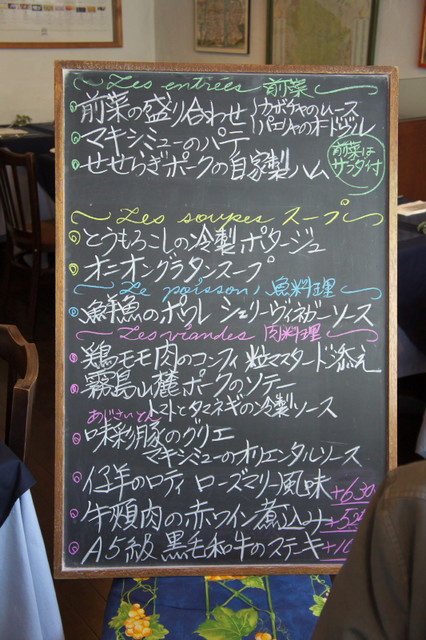 Les entrées 前菜
前菜の盛り合わせ (カボチャのムース
パエリャのオードヴル
マキシミューのパテ
せせらぎポークの自家製ハム
前菜は
サラダ付
Les soupes スープ
とうもろこしの冷製ポタージュ
オニオングラタンスープ
Le poisson 魚料理
鮮魚のポワレ シェリーヴィネガーソース
Les viandes 肉料理
鶏モモ肉のコンフィ 粒マスタード添え
霧島山麓ポークのソテー
トマトとタマネギの冷製ソース
あじさいとん
味彩豚のグリエ
マキシミューのオリエンタルソース
仔羊のロティ ローズマリー風味 +630
牛頬肉の赤ワイン煮込み +525
A5級黒毛和牛のステーキ